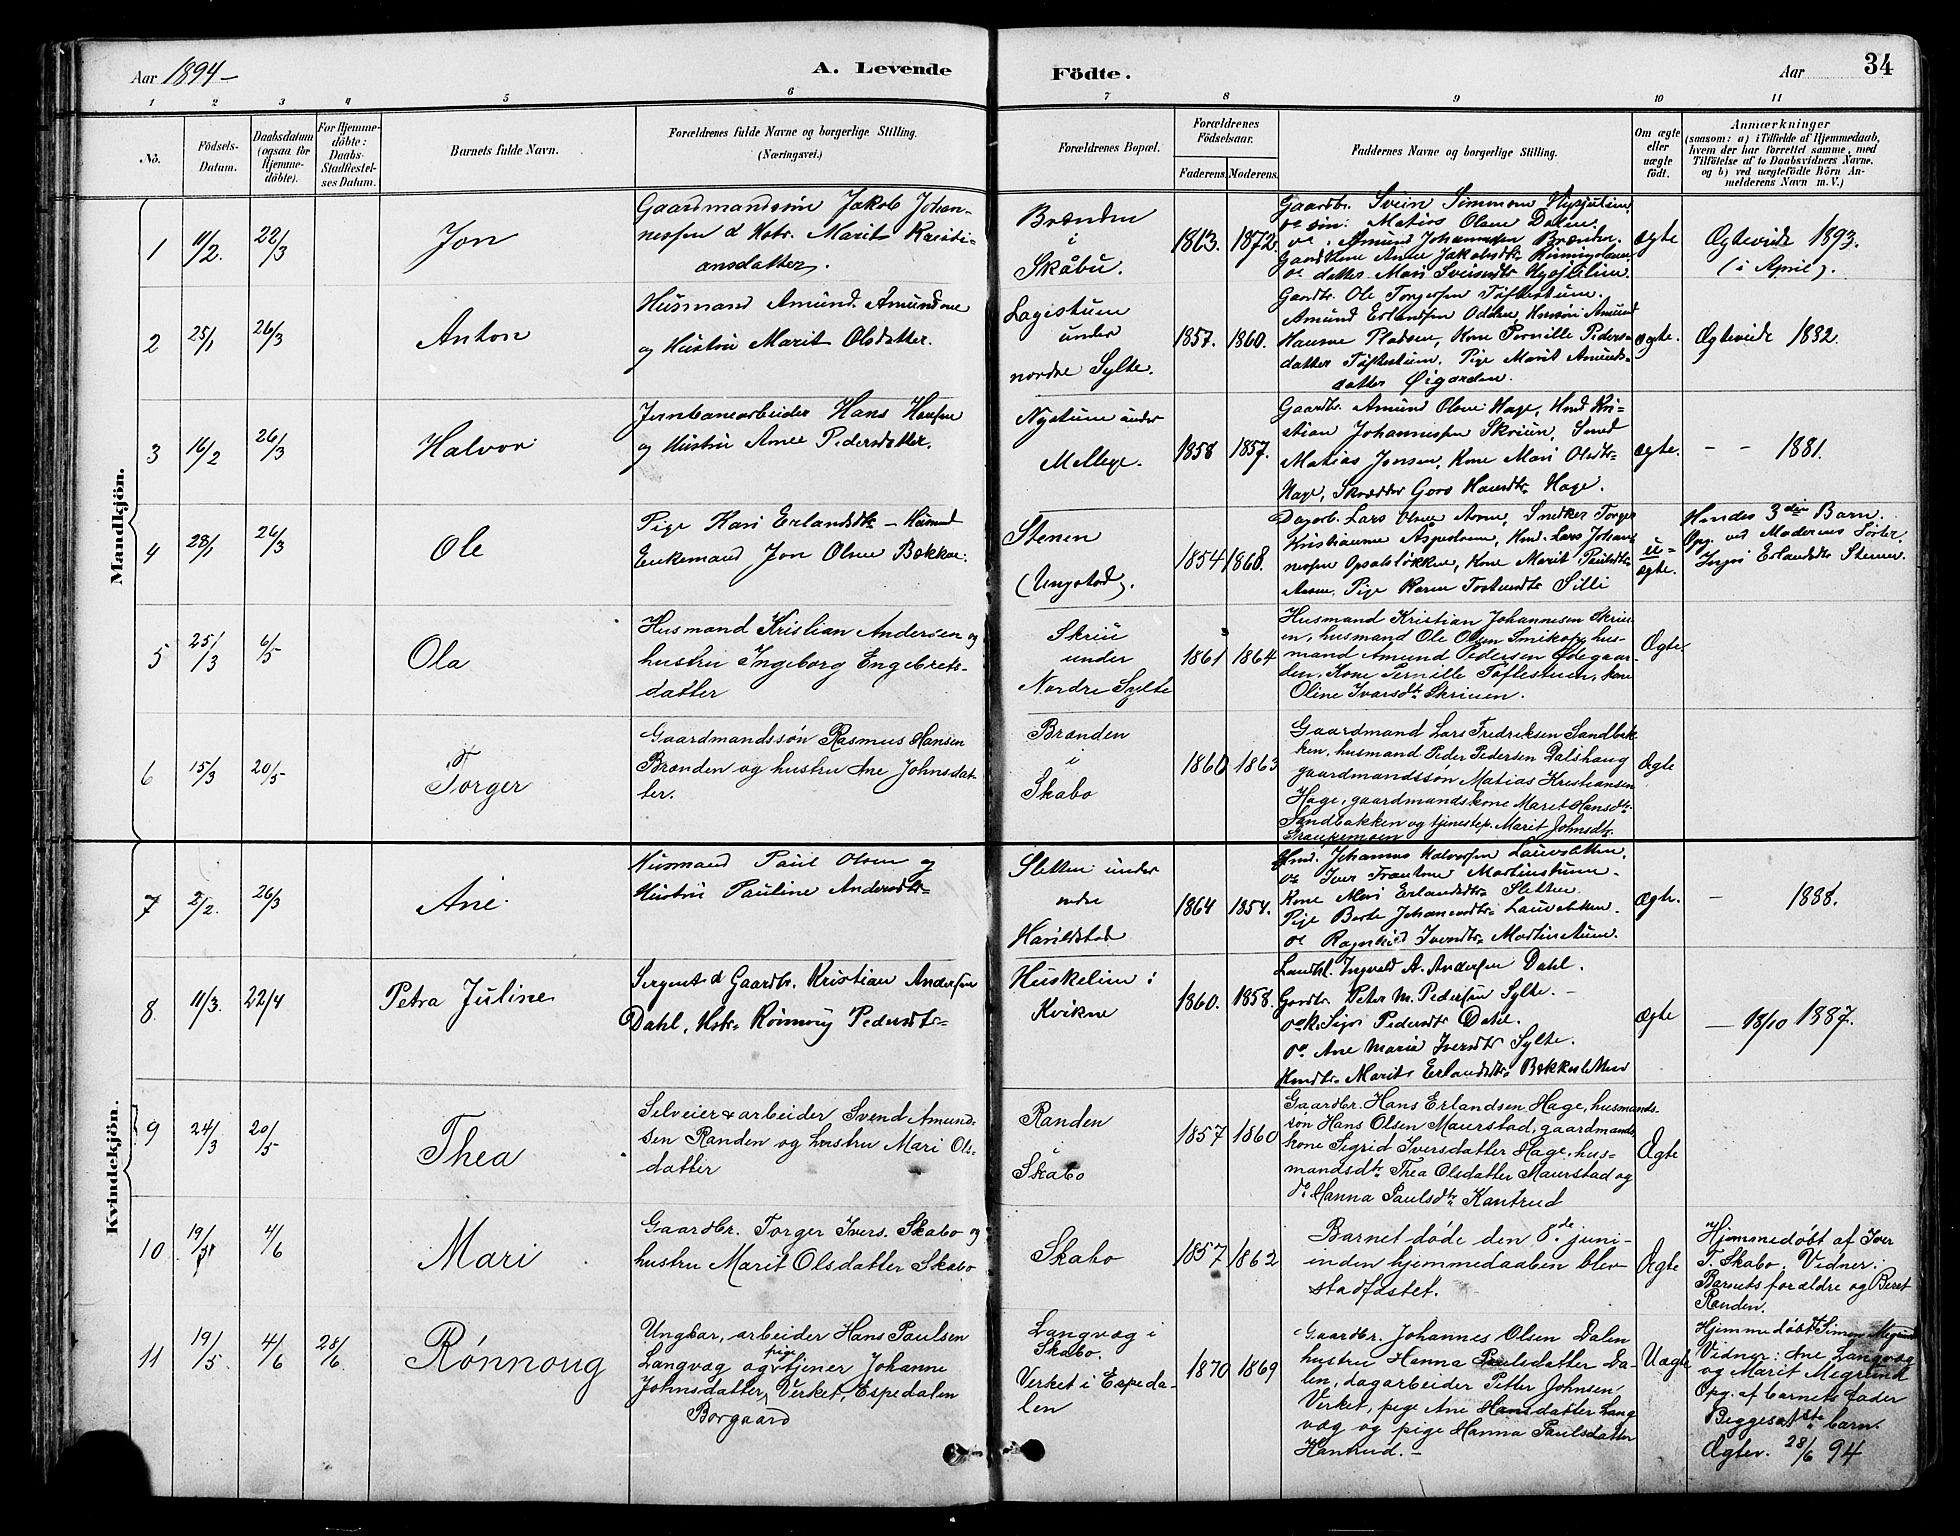 Aar 1894-
A. Levende Födte.
Aar
34
1 2 3 4 5 6 7 8 9 10 11
No.
Födsels-
Datum.
Daabsdatum
(ogsaa for
Hjemme-
döbte).
For Hjemme-
döbte:
Daabs-
Stadfæstel-
ses Datum.
Barnets fulde Navn.
Forældrenes fulde Navne og borgerlige Stilling.
(Næringsvei.)
Forældrenes Bopæl.
Forældrenes
Födselsaar.
Faderens. Moderens.
Faddernes Navne og borgerlige Stilling.
Om ægte
eller
uægte
født.
Anmærkninger
(saasom: a) i Tilfælde af Hjemmedaab,
hvem der har forrettet samme, med
Tilföielse af to Daabsvidners Navne.
og b) ved uægtefödte Börn An-
melderens Navn m. V.)
Mandkjön.
1
11/2.
22/3
Jon
Gaardmandssön Jakob Johan-
nessen & Hstr. Marit Kristi-
ansdatter.
Brænden
i
Skåbu.
1863. 1872.
Gaardbr. Svein Simmonsen
Matias Olsen Dalen.
Amund Johannessen Brænden.
Gaardkone Anne Jakobsdtr
datter Mari Sveinsdtr
Ægte
Ægteviede 1893.
(i April).
2
25/1
26/3
Anton
Husmand Amund Amundsen
og Hustru Marit Olsdatter.
Lagestuen
under
nordre Sylte.
1857. 1860.
Gaardbr. Ole Torgersen Toftestuen.
Amund Erlandsen Odden, Husm. Amund
Hansen Pladsen, Kone Pernille Peders-
datter Toftestuen, Pige Marit Amunds-
datter Øigarden.
Ægte.
Ægteviede 1882.
3
16/2
26/3
Halvor
Jernbanearbeider Hans Hansen
og Hustru Anne Pedersdatter.
Nystuen under
Mellege.
1858 1857.
Gaardbr. Amund Olsen Hage, Hmd Kri-
stian Johannessen Skriuen, Smed
Matias Jensen, Kone Mari Olsdtr
Hage, Skrædder Goro Hansdtr Hage.
Ægte.
- - 1881.
4
28/1
26/3
Ole
Pige Kari Erlandsdtr - Husmd
Enkemand Jon Olsen Bækken.
Stenen
(Ungstad).
1854 1868.
Dagarb. Lars Olsen Aaven, Snedker Torger
Kristiansen Aspedown, Hmd. Lars Johan-
nessen Opsalsløkken, Kone Marit Paulsdtr
Aaven, Pige Karen Tostensdtr Silli
u-
ægte.
Hendes 3die Barn.
Opg. ved Moderens Søster
Inga Erlandsdtr Stenen.
5
25/3
6/5
Ola
Husmand Kristian Andersen og
hustru Ingeborg Engebrets-
datter
Skriu
under
Nordre Sylte
1861 1864
Husmand Kristian Johannesen Skriu-
en, husmand Ole Olsen Smikop, hus-
mand Amund Pedersen Ødegaar-
den, Kone Pernille Toftestuen, kone
Oline Ivarsdtr Skriuen.
Ægte.
6
15/3
20/5
Torger
Gaardmandssøn Rasmus Hansen
Brænden og hustru Ane Johnsdat-
ter.
Brænden
i
Skabo
1860 1863
Gaardmand Lars Fredriksen Sandbak-
ken, husmand Peder Pedersen Dalshaug
gaardmandssøn Matias Kristiansen
Hage, gaardmandskone Marit Hansdtr
Sandbakken og tjenestep. Marit Johnsdtr
Graupemoen
Ægte
Kvindekjön.
7
2/2.
26/3
Ane
Husmand Paul Olsen og
Hustru Pauline Andersdtr
Sletten under
nedre
Harildstad
1864 1854.
Hmd. Johannes Halvorsen Lauvsletten.
do Iver Frantsen Martinstuen.
Kone Mari Erlandsdtr Sletten.
Pige Berte Johannesdtr Lauvsletten.
do Ragnhild Iversdtr Martinstuen.
Ægte.
- 1888.
8.
11/3.
22/4
Petra Juline
Sergent & Gaardbr. Kristian Andersen
Dahl, Hstr. Rønnoug Pedersdtr
Huskelien i
Kvikne
1860. 1858.
Landhl. Ingvald A. Andersen Dahl.
Gardbr. Peter M. Pedersen Sylte. -
Sigri Pedersdtr Dahl.
do Ane Maria Iversdtr Sylte.
Marit Erlandsdtr Bækkesletten
Ægte
- 18/10 1887.
9
24/3
20/5
Thea
Selveier & arbeider Svend Amund-
sen Randen og hustru Mari Ols-
datter
Randen
i
Skabo
1857 1860
Gaardbr. Hans Erlandsen Hage, husmands-
søn Hans Olsen Maurstad, gaardmands
kone Sigrid Iversdatter Hage, hus-
mandsdtr Thea Olsdatter Maurstad og
do Hanna Paulsdtr Kantrud
Ægte
10
19/5
4/6
Mari
Gaardbr. Torger Ivers. Skabo og
hustru Marit Olsdatter Skabo
Skabo
1857 1862
Barnet døde den 8de juni
inden hjemmedaaben blev
stadfæstet.
Ægte
Hjemmedøbt af Iver
T. Skabo. Vidner:
Barnets forældre og Berit
Randen.
11
19/5.
4/6
28/6.
Rønnoug
Ungkar, arbeider Hans Paulsen
Langvæg og pige tjener Johanne
Johnsdatter, Verket, Espedalen
Borgaard
Langvæg i
Skabo.
Verket i Espeda-
len
1870 1869
Gaardbr. Johannes Olsen Dalen
hustru Hanna Paulsdatter Da-
len, dagarbeider Petter Johnsen
Verket, pige Ane Hansdatter Lang
væg og pige Hanna Paulsdatter
Kantrud. -
Uægte
Hjemmedøbt Simen Megrund
Vidner: Ane Langvæg
og Marit Megrund
Opg. af barnets fader
Begges 1ste barn.
Ægtev. 28/6 94